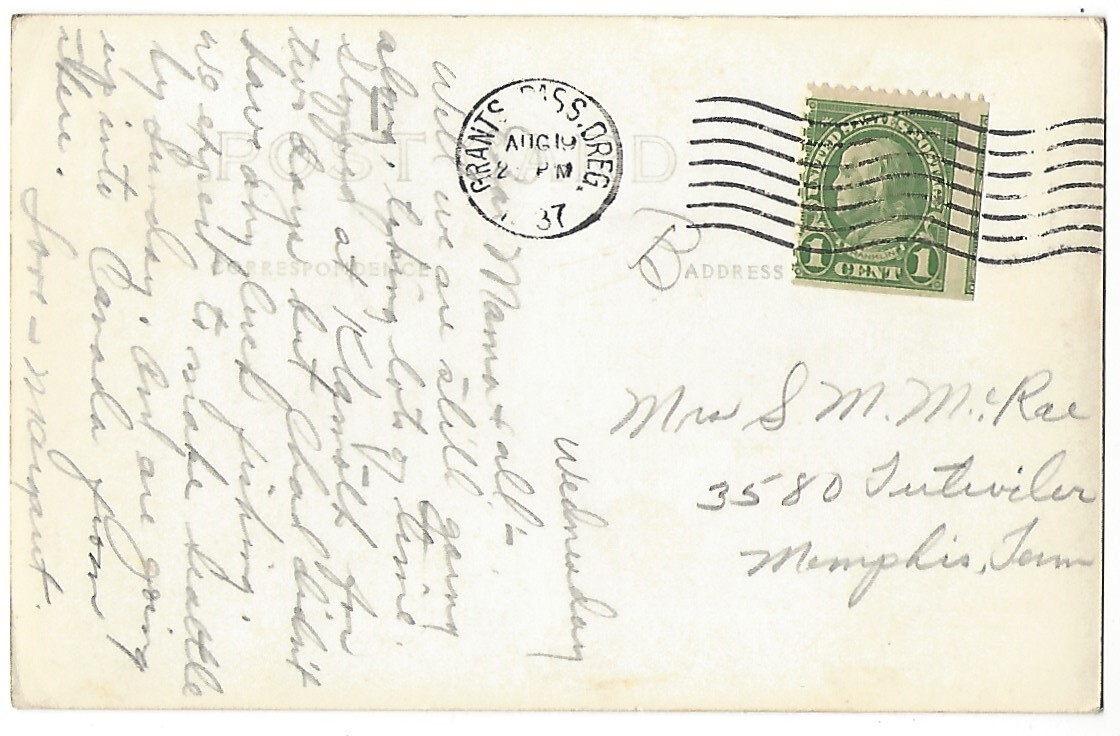 POST CARD
CORRESPONDENCE
ADDRESS
GRANTS PASS, OREG.
AUG 19
2 PM
37
UNITED STATES POSTAGE
FRANKLIN
1 CENT 1
B
Mrs S. M. McRae
3580 Tutwiler
Memphis, Tenn
Wednesday
Mama & all:-
Well we are still going
along, taking lots of time.
Stopped at Klamath for
two days but Chas didn't
have any luck fishing.
We expect to make Seattle
by Sunday. And are going
up into Canada from
there.
Love - Margaret.